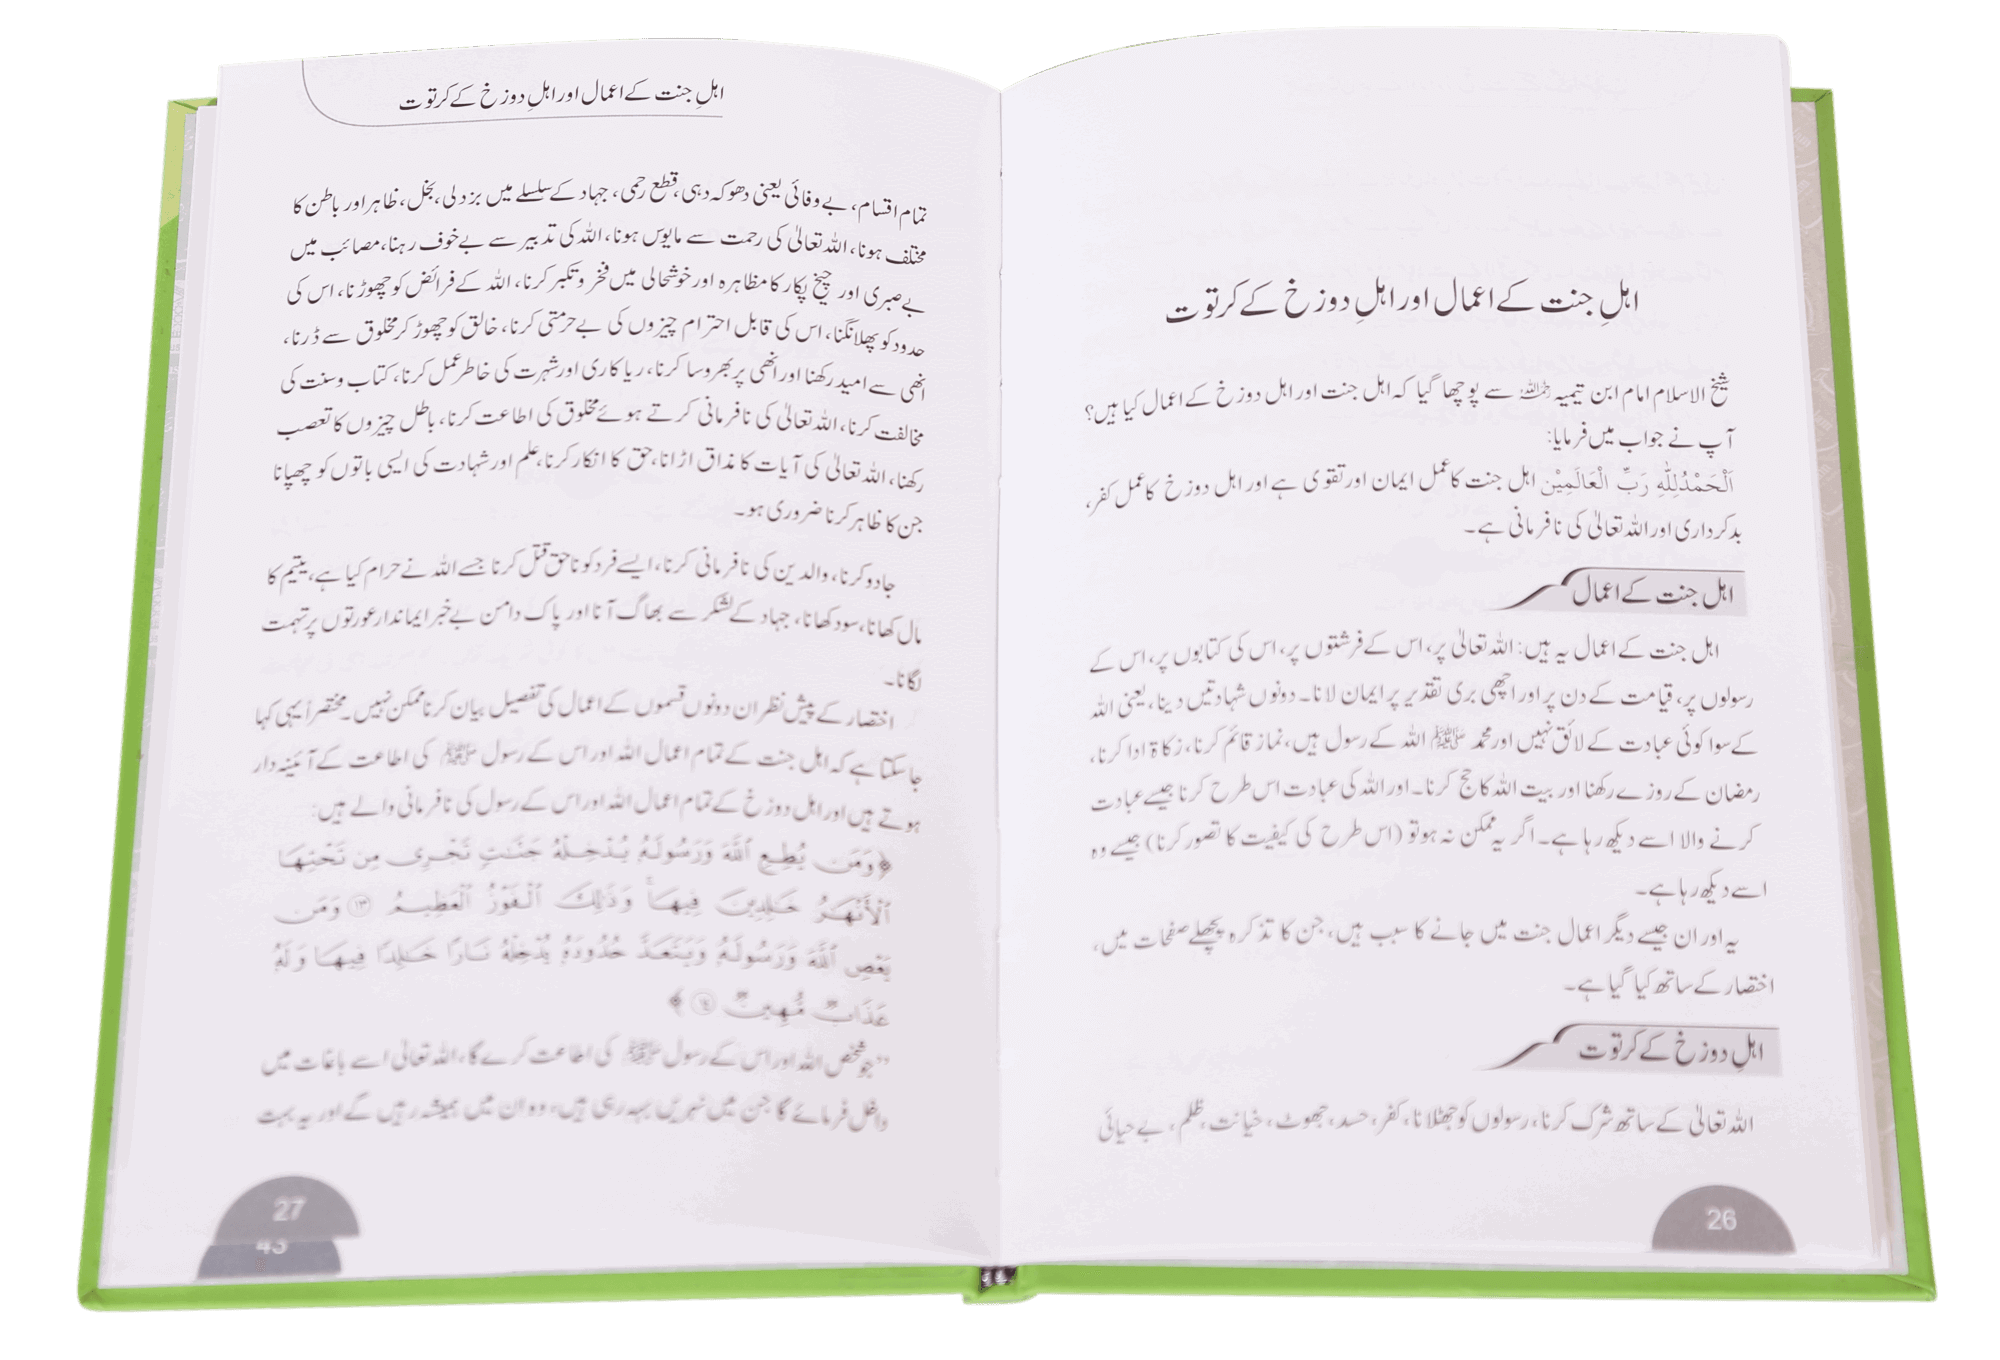 اہلِ جنت کے اعمال اور اہلِ دوزخ کے کرتوت
شیخ الاسلام امام ابن تیمیہ رحمہ اللہ سے پوچھا گیا کہ اہل جنت اور اہل دوزخ کے اعمال کیا ہیں؟
آپ نے جواب میں فرمایا:
اَلْحَمْدُلِلّٰهِ رَبِّ الْعَالَمِيْن اہل جنت کا عمل ایمان اور تقوی ہے اور اہل دوزخ کا عمل کفر،
بدکرداری اور اللہ تعالیٰ کی نافرمانی ہے۔
اہل جنت کے اعمال
اہل جنت کے اعمال یہ ہیں: اللہ تعالیٰ پر، اس کے فرشتوں پر، اس کی کتابوں پر، اس کے
رسولوں پر، قیامت کے دن پر اور اچھی بری تقدیر پر ایمان لانا۔ دونوں شہادتیں دینا، یعنی اللہ
کے سوا کوئی عبادت کے لائق نہیں اور محمد ﷺ اللہ کے رسول ہیں، نماز قائم کرنا، زکاۃ ادا کرنا،
رمضان کے روزے رکھنا اور بیت اللہ کا حج کرنا۔ اور اللہ کی عبادت اس طرح کرنا جیسے عبادت
کرنے والا اسے دیکھ رہا ہے۔ اگر یہ ممکن نہ ہو تو (اس طرح کی کیفیت کا تصور کرنا) جیسے وہ
اسے دیکھ رہا ہے۔
یہ اور ان جیسے دیگر اعمال جنت میں جانے کا سبب ہیں، جن کا تذکرہ پچھلے صفحات میں،
اختصار کے ساتھ کیا گیا ہے۔
اہلِ دوزخ کے کرتوت
اللہ تعالیٰ کے ساتھ شرک کرنا، رسولوں کو جھٹلانا، کفر، حسد، جھوٹ، خیانت، ظلم، بے حیائی
26
اہلِ جنت کے اعمال اور اہلِ دوزخ کے کرتوت
تمام اقسام، بے وفائی یعنی دھوکہ دہی، قطع رحمی، جہاد کے سلسلے میں بزدلی، بخل، ظاہر اور باطن کا
مختلف ہونا، اللہ تعالیٰ کی رحمت سے مایوس ہونا، اللہ کی تدبیر سے بے خوف رہنا، مصائب میں
بے صبری اور چیخ پکار کا مظاہرہ اور خوشحالی میں فخر و تکبر کرنا، اللہ کے فرائض کو چھوڑنا، اس کی
حدود کو پھلانگنا، اس کی قابل احترام چیزوں کی بے حرمتی کرنا، خالق کو چھوڑ کر مخلوق سے ڈرنا،
انھی سے امید رکھنا اور انھی پر بھروسا کرنا، ریا کاری اور شہرت کی خاطر عمل کرنا، کتاب و سنت کی
مخالفت کرنا، اللہ تعالیٰ کی نافرمانی کرتے ہوئے مخلوق کی اطاعت کرنا، باطل چیزوں کا تعصب
رکھنا، اللہ تعالیٰ کی آیات کا مذاق اڑانا، حق کا انکار کرنا، علم اور شہادت کی ایسی باتوں کو چھپانا
جن کا ظاہر کرنا ضروری ہو۔
جادو کرنا، والدین کی نافرمانی کرنا، ایسے فرد کو ناحق قتل کرنا جسے اللہ نے حرام کیا ہے، یتیم کا
مال کھانا، سود کھانا، جہاد کے لشکر سے بھاگ آنا اور پاک دامن بے خبر ایماندار عورتوں پر تہمت
لگانا۔
اختصار کے پیش نظر ان دونوں قسموں کے اعمال کی تفصیل بیان کرنا ممکن نہیں۔ مختصراً یہی کہا
جا سکتا ہے کہ اہل جنت کے تمام اعمال اللہ اور اس کے رسول ﷺ کی اطاعت کے آئینہ دار
ہوتے ہیں اور اہل دوزخ کے تمام اعمال اللہ اور اس کے رسول کی نافرمانی والے ہیں:
﴿وَمَن يُطِعِ ٱللَّهَ وَرَسُولَهُۥ يُدْخِلْهُ جَنَّٰتٍ تَجْرِى مِن تَحْتِهَا
ٱلْأَنْهَٰرُ خَٰلِدِينَ فِيهَا ۚ وَذَٰلِكَ ٱلْفَوْزُ ٱلْعَظِيمُ ۝١٣ وَمَن
يَعْصِ ٱللَّهَ وَرَسُولَهُۥ وَيَتَعَدَّ حُدُودَهُۥ يُدْخِلْهُ نَارًا خَٰلِدًا فِيهَا وَلَهُۥ
عَذَابٌ مُّهِينٌ ۝١٤﴾
”جو شخص اللہ اور اس کے رسول ﷺ کی اطاعت کرے گا، اللہ تعالیٰ اسے باغات میں
داخل فرمائے گا جن میں نہریں بہہ رہی ہیں، وہ ان میں ہمیشہ رہیں گے اور یہ بہت
27
43